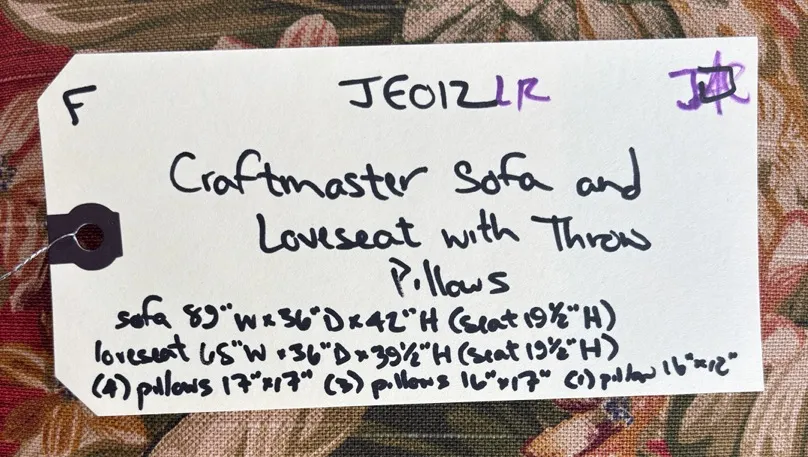 F
JE012LR
Craftmaster Sofa and
Loveseat with Throw
Pillows
sofa 89"W x 36"D x 42"H (seat 19½"H)
loveseat 65"W x 36"D x 39½"H (seat 19½"H)
(4) pillows 17"x17" (3) pillows 16"x17" (1) pillow 16"x12"